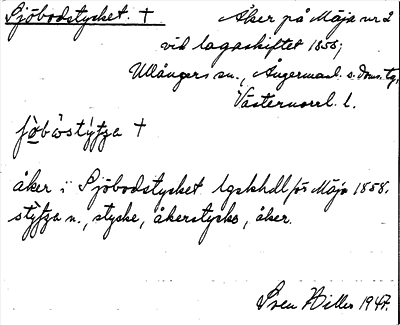 Sjöbodstycket. † Åker på Mäja nr 2
vid lagaskiftet 1858;
Ullångers sn., Ångermanl. s. doms. tg,
Västernorrl. l.
åker i Sjöbodstycket lgskhdl för Mäja 1858.
n., stycke, åkerstycke, åker.
Sven Hiller 1947.